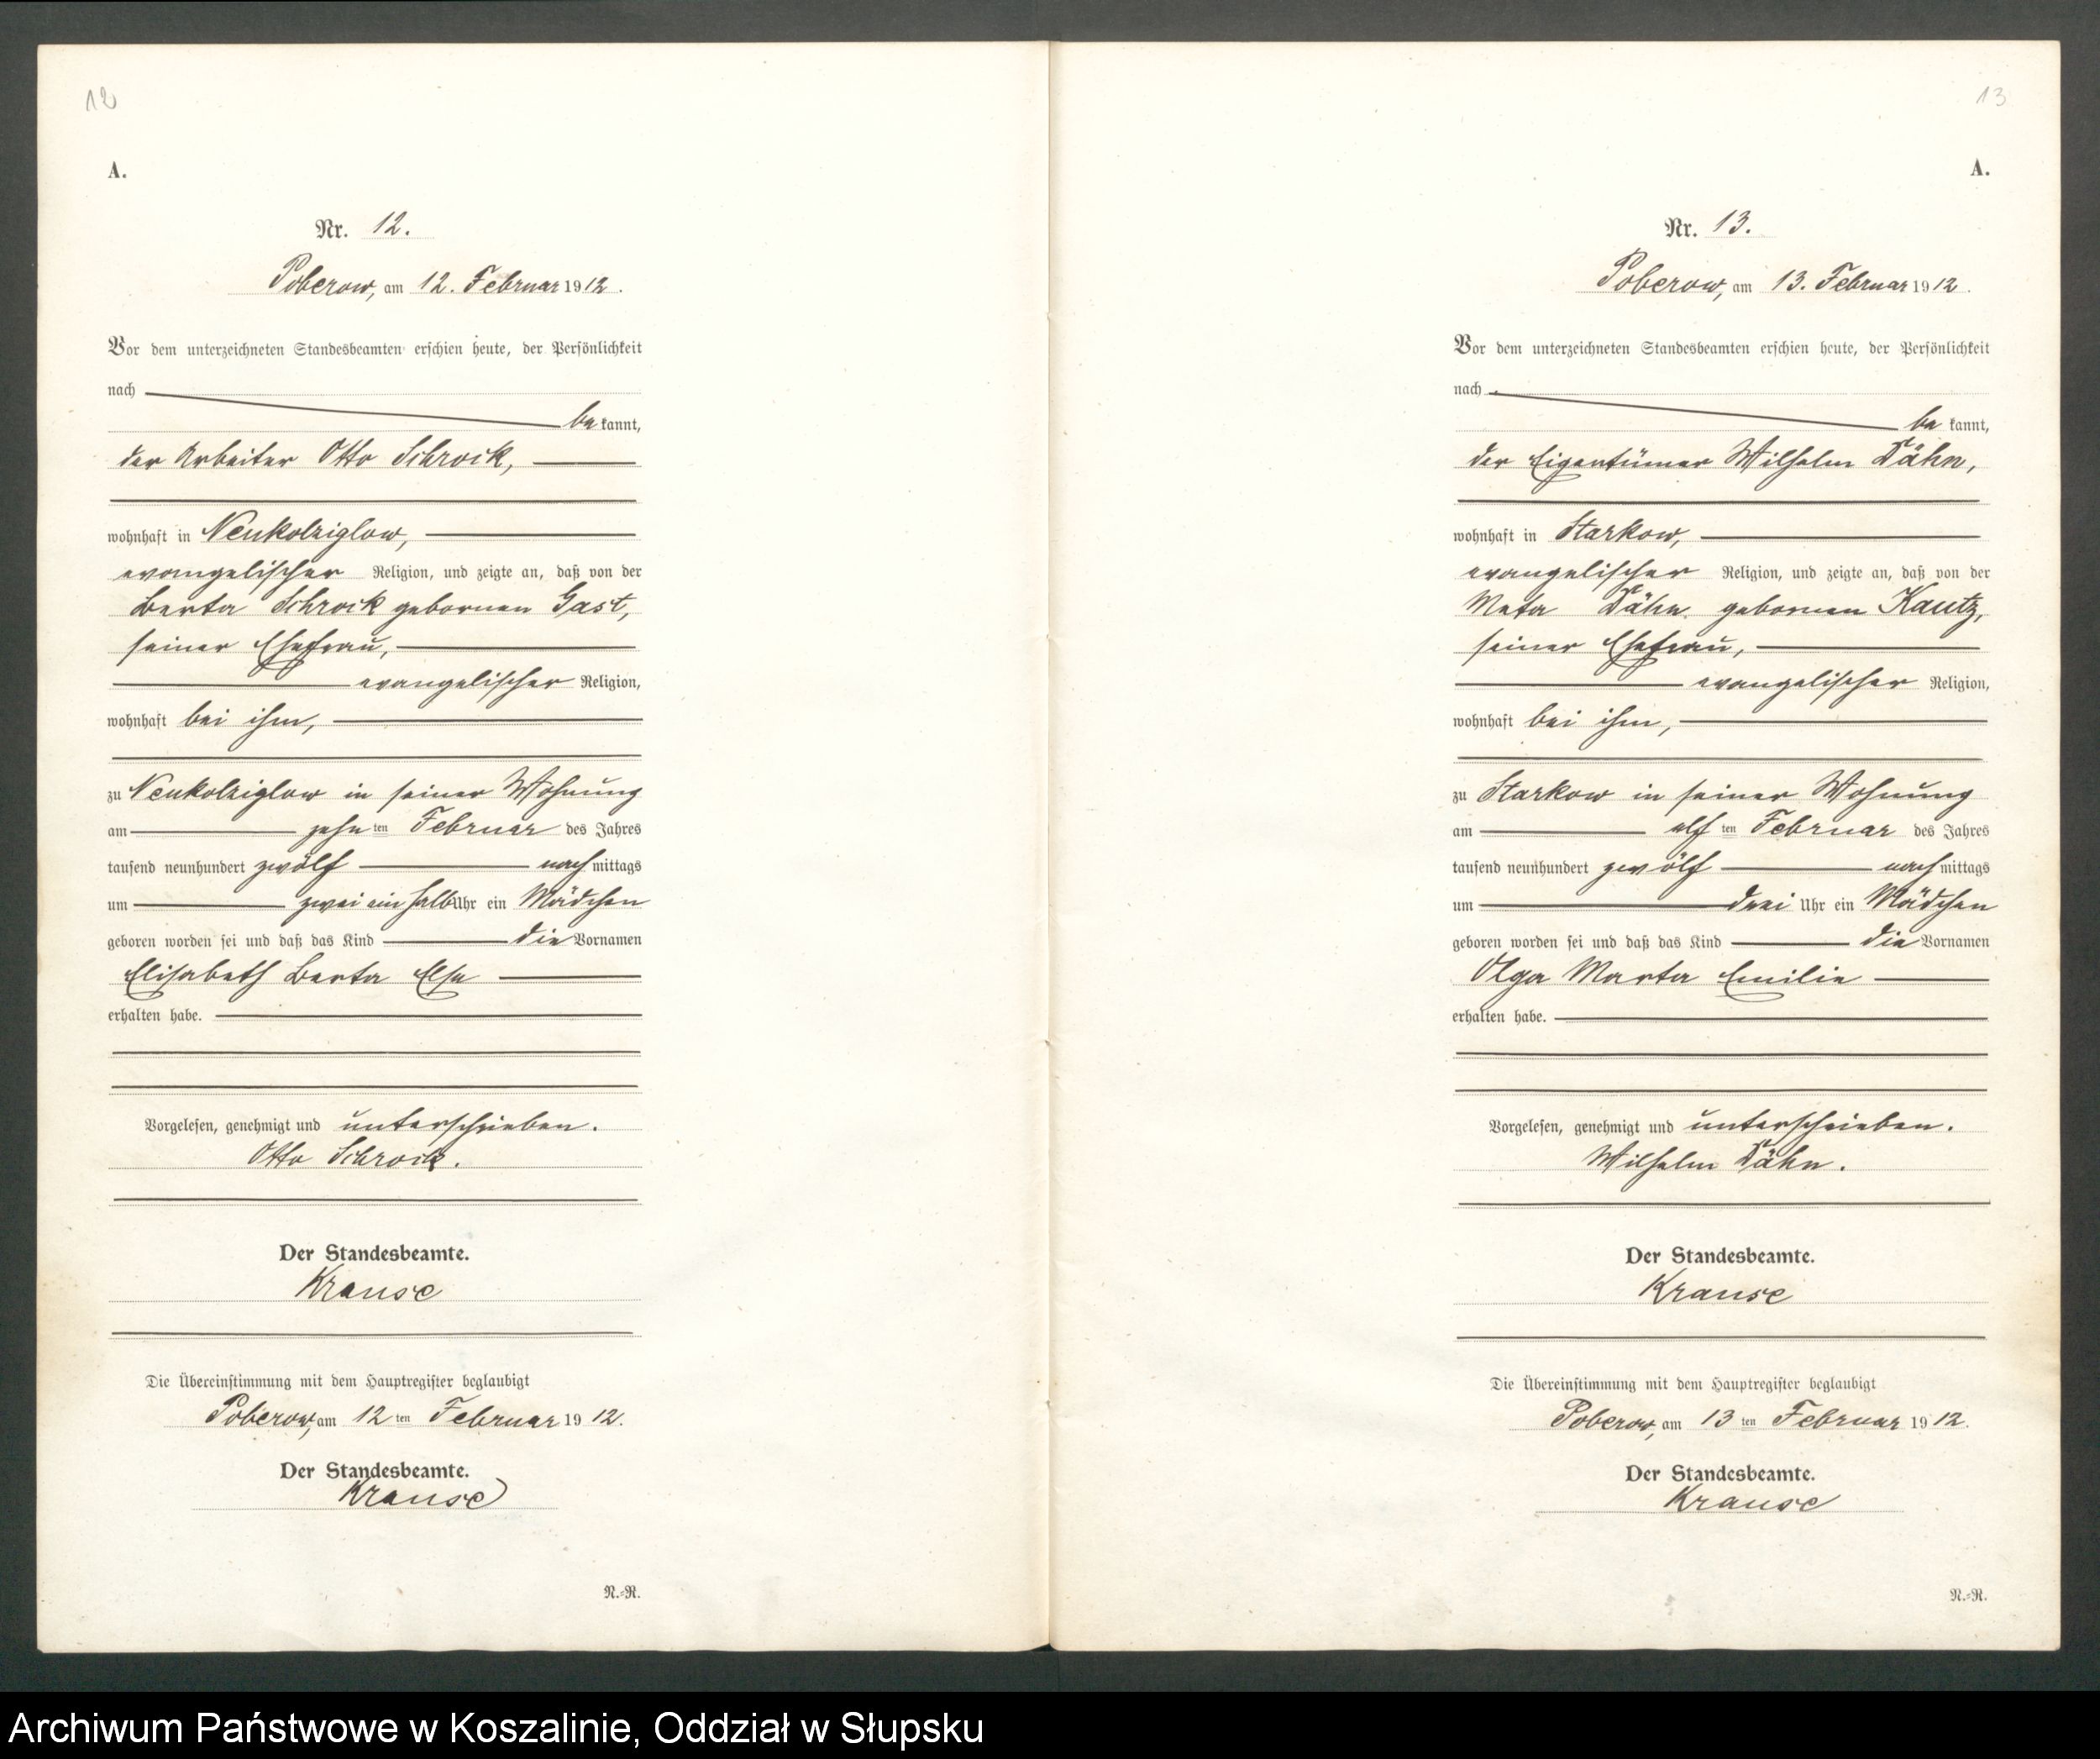 12
A.
Nr. 12.
Poberow, am 12. Februar 1912.
Vor dem unterzeichneten Standesbeamten erschien heute, der Persönlichkeit
nach
bekannt,
der Arbeiter Otto Schrock,
wohnhaft in Neukolziglow,
evangelischer Religion, und zeigte an, daß von der
Berta Schrock gebornen Gast,
seiner Ehefrau,
evangelischer Religion,
wohnhaft bei ihm,
zu Neukolziglow in seiner Wohnung
am zehnten Februar des Jahres
tausend neunhundert zwölf nachmittags
um zwei ein halb Uhr ein Mädchen
geboren worden sei und daß das Kind die Vornamen
Elisabeth Berta Else
erhalten habe.
Vorgelesen, genehmigt und unterschrieben.
Otto Schrock.
Der Standesbeamte.
Krause
Die Übereinstimmung mit dem Hauptregister beglaubigt
Poberow, am 12ten Februar 1912.
Der Standesbeamte.
Krause
N.=R.
13
A.
Nr. 13.
Poberow, am 13. Februar 1912.
Vor dem unterzeichneten Standesbeamten erschien heute, der Persönlichkeit
nach
bekannt,
der Eigentümer Wilhelm Dähn,
wohnhaft in Starkow,
evangelischer Religion, und zeigte an, daß von der
Meta Dähn gebornen Kautz,
seiner Ehefrau,
evangelischer Religion,
wohnhaft bei ihm,
zu Starkow in seiner Wohnung
am elften Februar des Jahres
tausend neunhundert zwölf nachmittags
um drei Uhr ein Mädchen
geboren worden sei und daß das Kind die Vornamen
Olga Marta Emilie
erhalten habe.
Vorgelesen, genehmigt und unterschrieben.
Wilhelm Dähn.
Der Standesbeamte.
Krause
Die Übereinstimmung mit dem Hauptregister beglaubigt
Poberow, am 13ten Februar 1912.
Der Standesbeamte.
Krause
N.=R.
Archiwum Państwowe w Koszalinie, Oddział w Słupsku